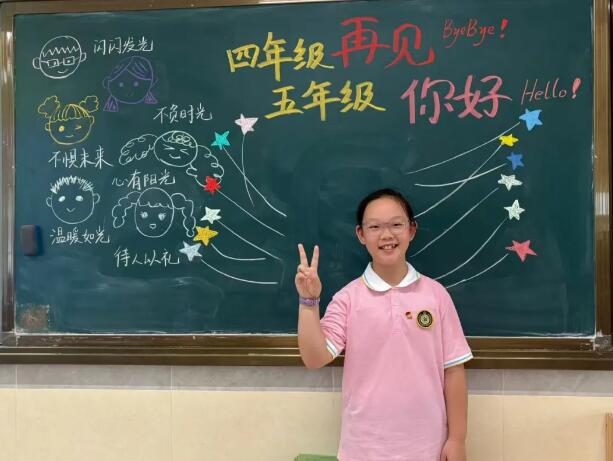 四年级 再见 ByeBye!
五年级 你好 Hello!
闪闪发光
不负时光
不惧未来
心有阳光
温暖如光
待人以礼